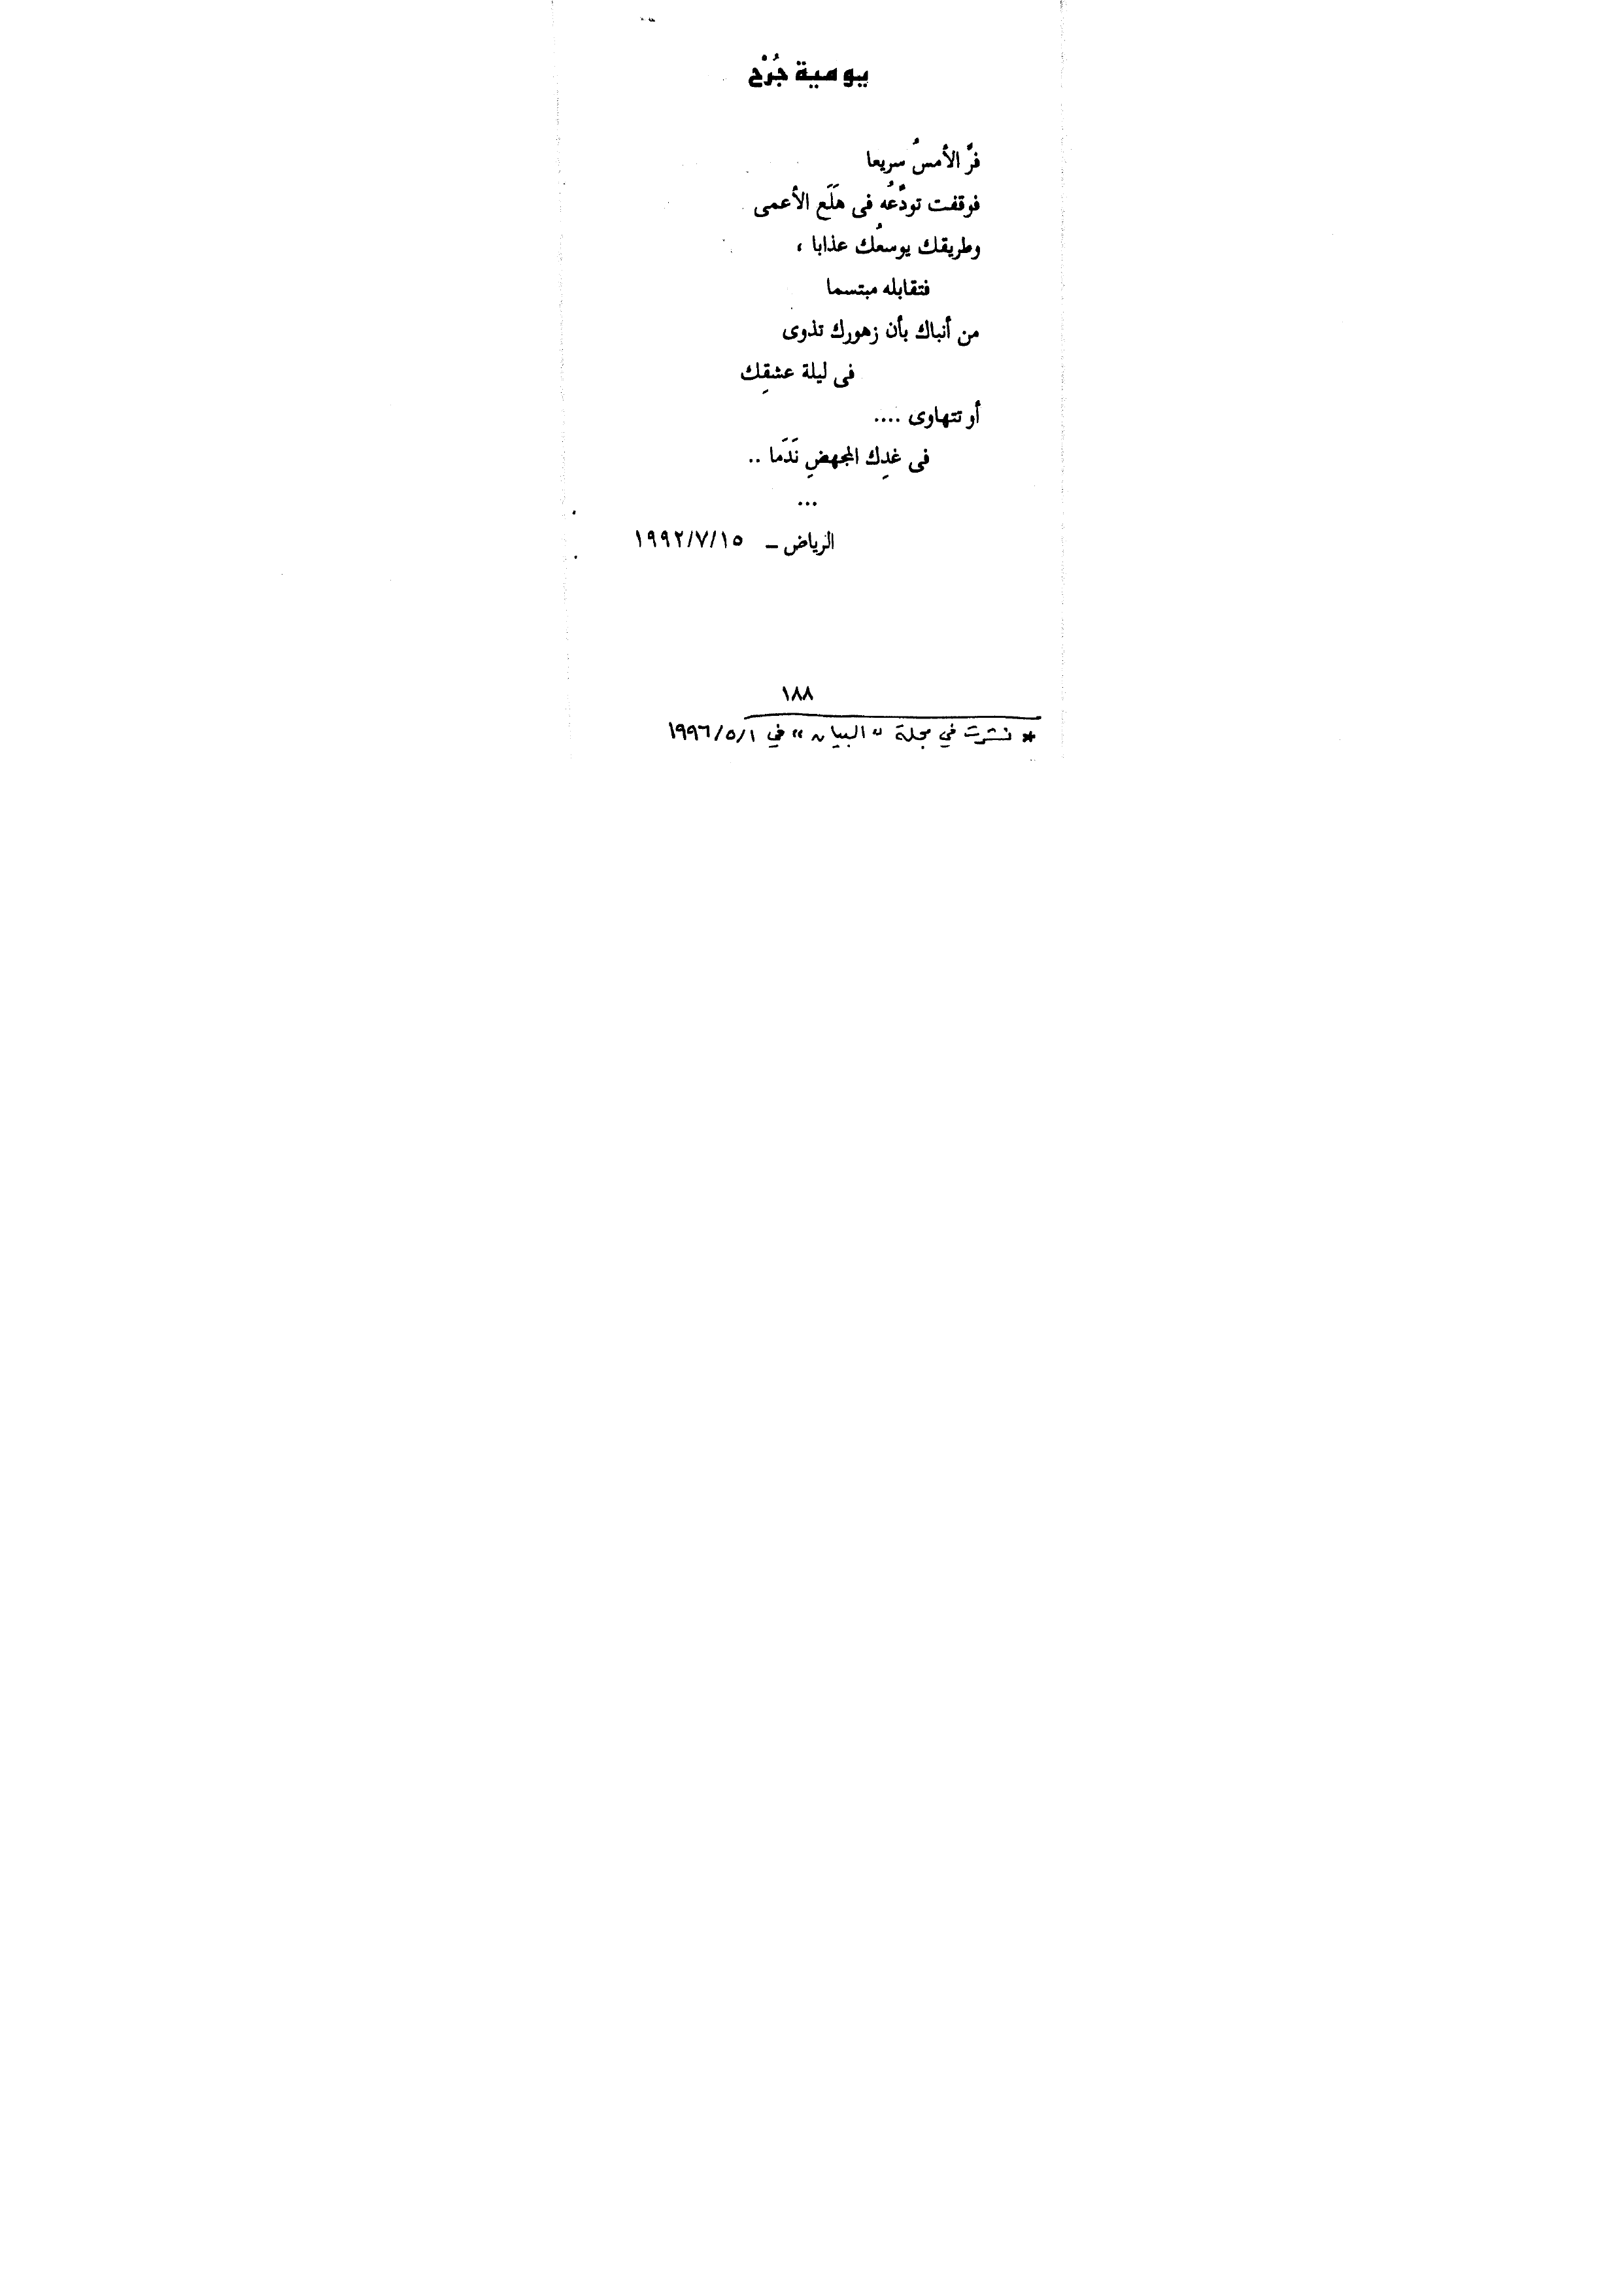 يومية جُرْح
فرَّ الأمسُ سريعا
فوقفت تودِّعُه فى هَلَع الأعمى
وطريقك يوسعُك عذابا ،
فتقابله مبتسما
من أنباك بأن زهورك تذوى
فى ليلة عشقِك
أو تتهاوى ....
فى غدِك المجهضِ نَدَما ..
...
الرياض ـ ١٩٩٢/٧/١٥
١٨٨
* نشرت في مجلة « البيان » في ١٩٩٦/٥/١